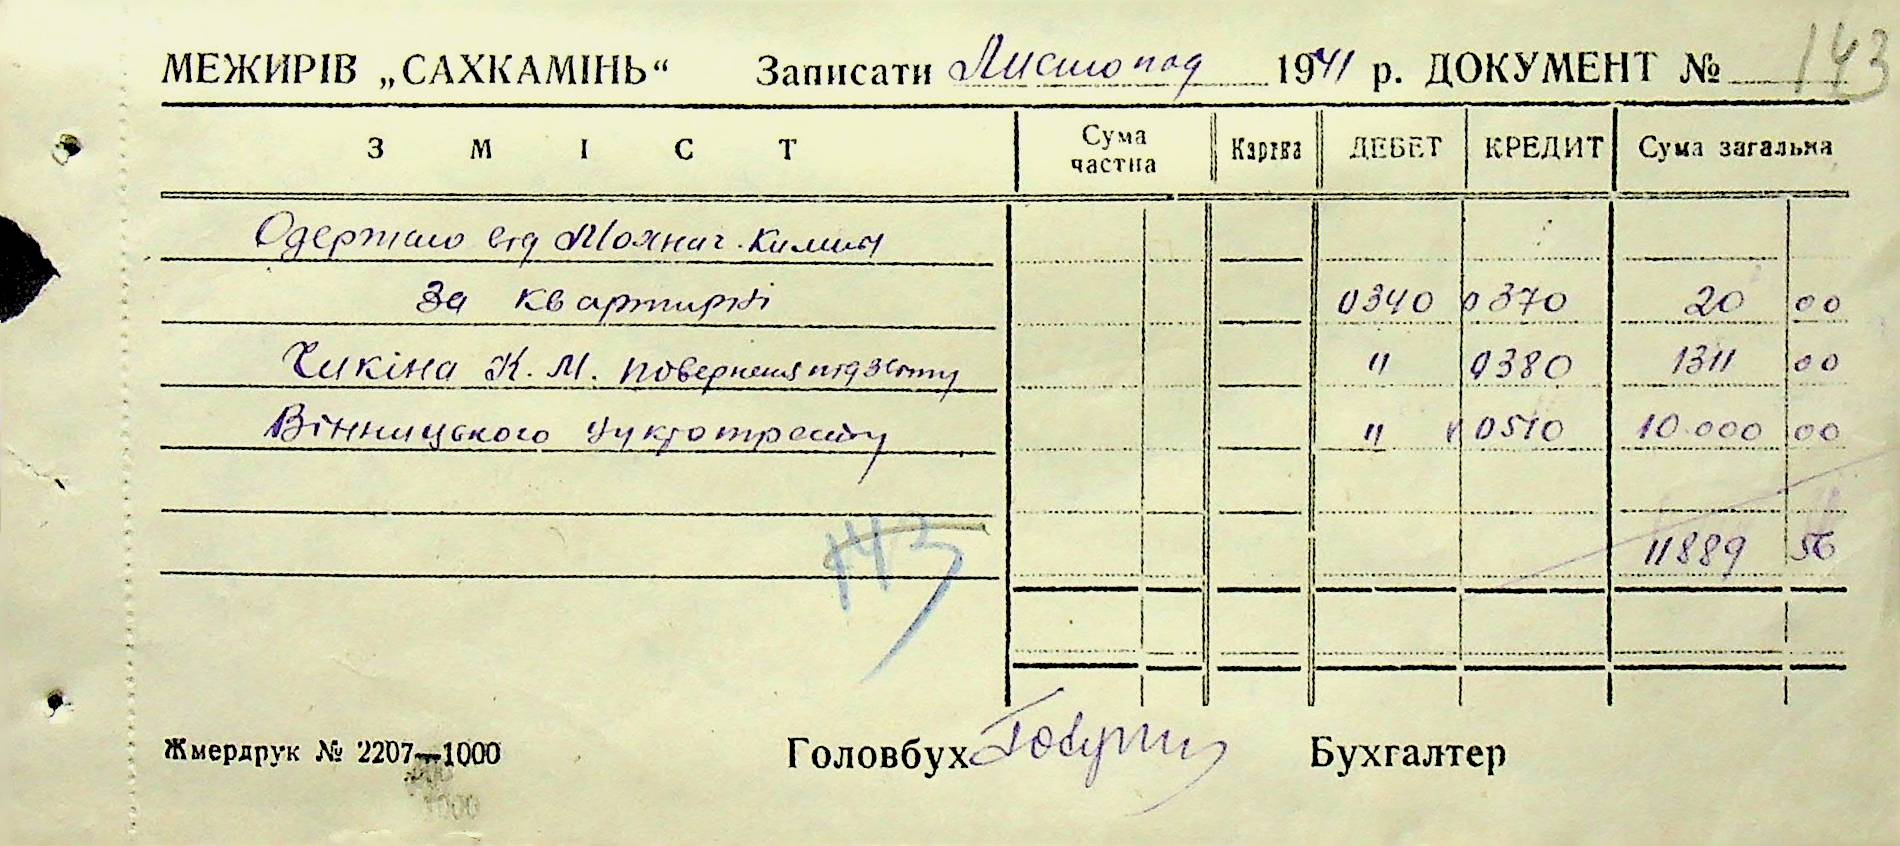 МЕЖИРІВ „САХКАМІНЬ“ Записати Листопад 1941 р. ДОКУМЕНТ № 143
ЗМІСТ Сума частна Картка ДЕБЕТ КРЕДИТ Сума загальна
Одержано від
За квартирні 0340 0370 20 00
Чикіна К. М. повернення підзвіту " 0380 1311 00
Вінницького цукротресту " 0510 10.000 00
11889 56
143
Жмердрук № 2207—1000 Головбух Бухгалтер